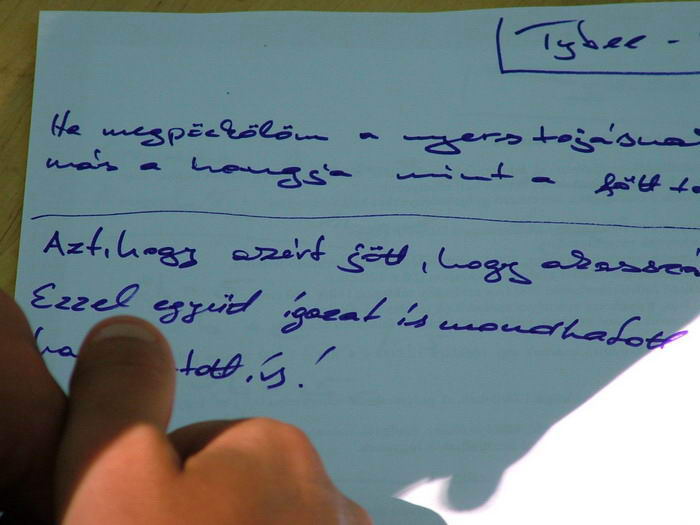 Tybee -
Ha megpöckölöm a nyers tojásna
más a hangja mint a főtt to
Azt, hogy azért jött, hogy akasszá
Ezzel együtt igazat is mondhatott
ha tott is!